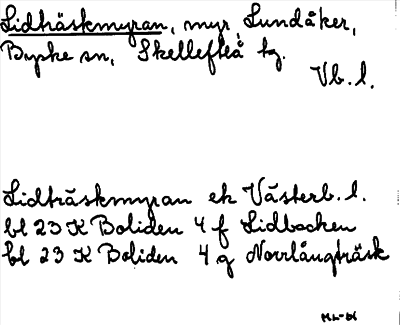 Lidträskmyran, myr, Lundåker,
Byske sn, Skellefteå tg.
Vb. l.
Lidträskmyran ek Västerb. l.
bl 23 K Boliden 4 f Lidbacken
bl 23 K Boliden 4 g Norrlångträsk